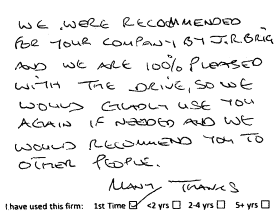 WE WERE RECOMMENDED
FOR YOUR COMPANY BY J.R.BRIG
AND WE ARE 100% PLEASED
WITH THE DRIVE, SO WE
WOULD GLADLY USE YOU
AGAIN IF NEEDED AND WE
WOULD RECOMMEND YOU TO
OTHER PEOPLE.
MANY THANKS
I have used this firm: 1st Time ☑ <2 yrs ☐ 2-4 yrs ☐ 5+ yrs ☐